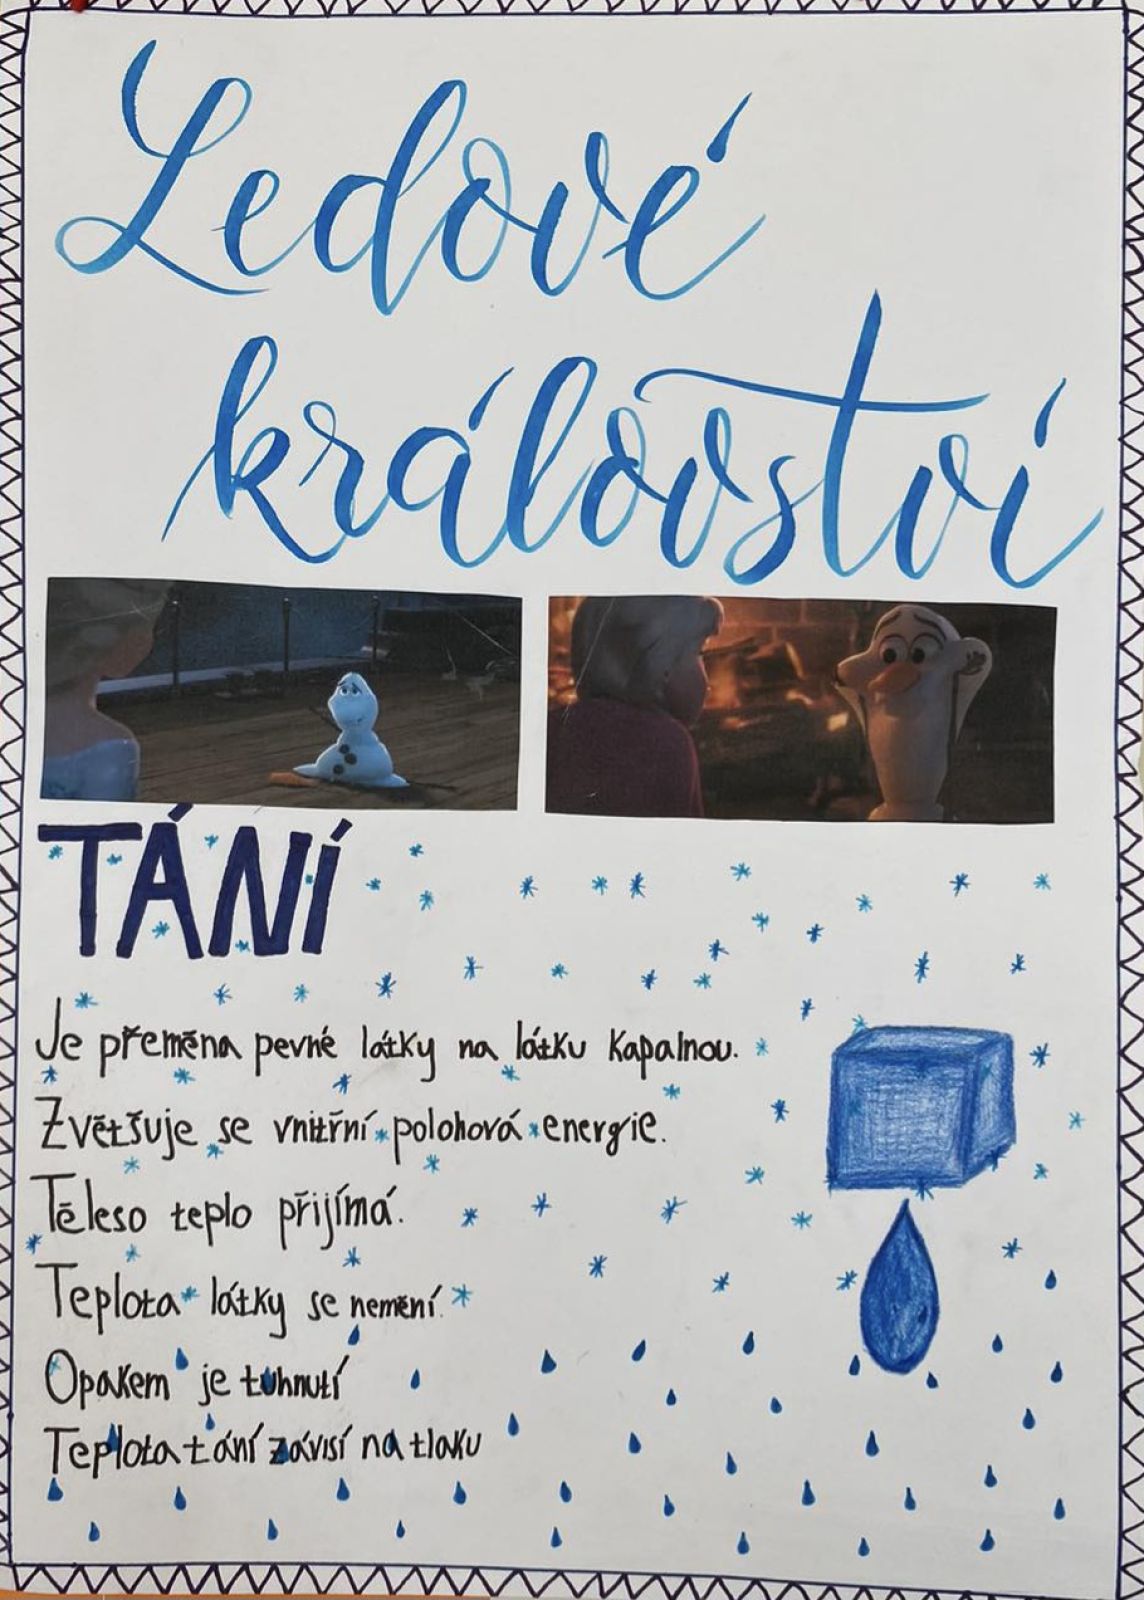 Ledové
království
TÁNÍ
Je přeměna pevné látky na látku kapalnou.
Zvětšuje se vnitřní polohová energie.
Těleso teplo přijímá.
Teplota látky se nemění.
Opakem je tuhnutí
Teplota tání závisí na tlaku